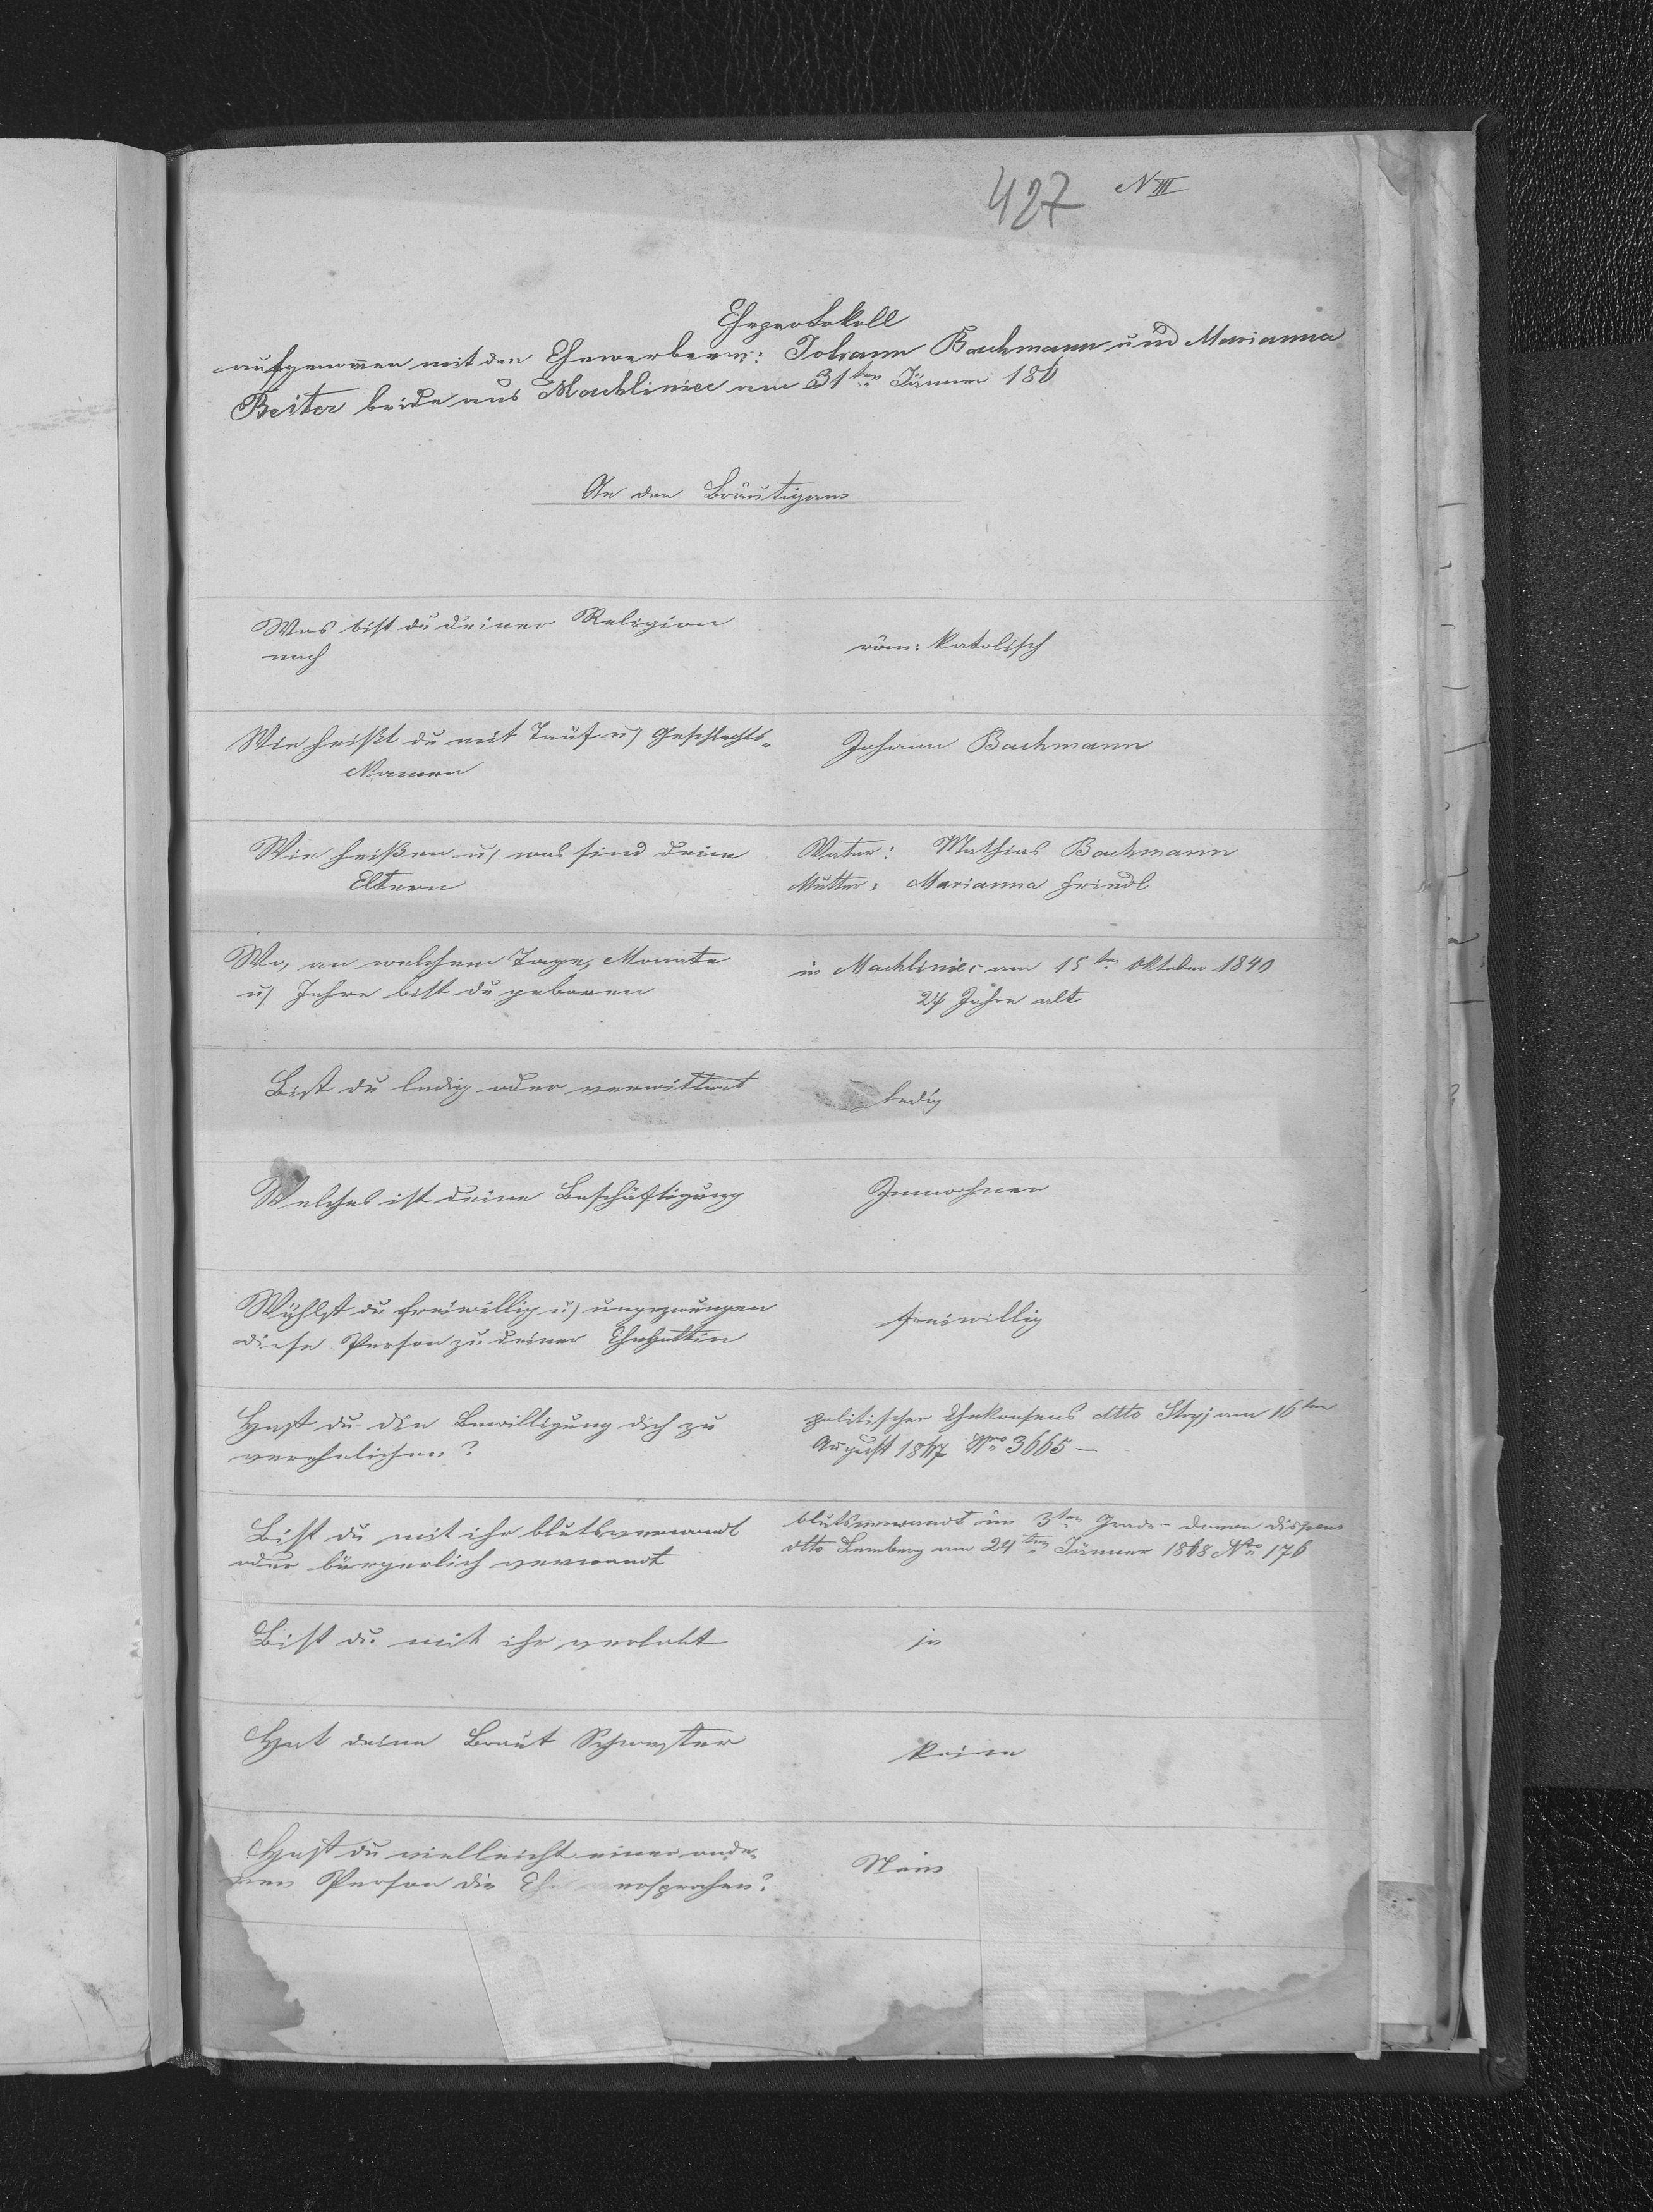 427 N III
Eheprotokoll
aufgenomen mit den Ehewerbern: Johann Bachmann und Marianna
Beiter beide aus Machliniec am 31ten Jänner 186
An den Bräutigam
Was bist du deiner Religion
nach
röm: katolisch
Wie heißt du mit Tauf u/ Geschlechts-
Namen
Johann Bachmann
Wie heißen u/ was sind deine
Eltern
Vater: Mathias Bachmann
Mutter: Marianna Heindl
Wo, an welchem Tage, Monate
u/ Jahre bist du geboren
in Machliniec am 15ten Oktober 1840
27 Jahre alt
Bist du ledig oder verwittwet
ledig
Welches ist deine Beschäftigung
Innwohner
Wählst du freiwillig u/ ungezwungen
diese Person zu deiner Ehegattin
freiwillig
Hast du die Bewilligung dich zu
verehelichen?
politischer Ehekonsens dtto Stryj am 16ten
August 1867 Nro 3665 —
Bist du mit ihr blutsverwandt
oder bürgerlich verwandt
blutsverwandt im 3ten Grade - davon dispens
dtto Lemberg am 24ten Jänner 1868 Nro 176
Bist du mit ihr verlobt
ja
Hat deine Braut Schwester
keine
Hast du vielleicht einer ande-
ren Person die Ehe versprochen?
Nein